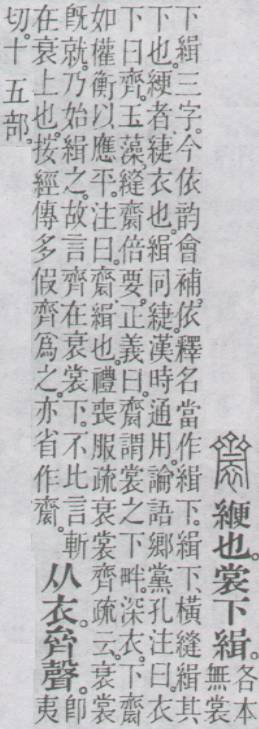 緶也。裳下緝。各本
無裳
下緝三字。今依韵會補。依釋名當作緝下。緝下、橫縫緝其
下也。緶者、緁衣也。緝同緁。漢時通用。論語鄉黨孔注曰。衣
下曰齊。玉藻。縫齋倍要。正義曰。齋謂裳之下畔。深衣。下齋
如權衡以應平。注曰。齋、緝也。禮喪服疏衰裳齊疏云。衰裳
旣就。乃始緝之。故言齊在衰裳下。不比言斬
在衰上也。按經傳多假齊爲之。亦省作齋。
从衣。齊聲。卽
夷
切。十五部。